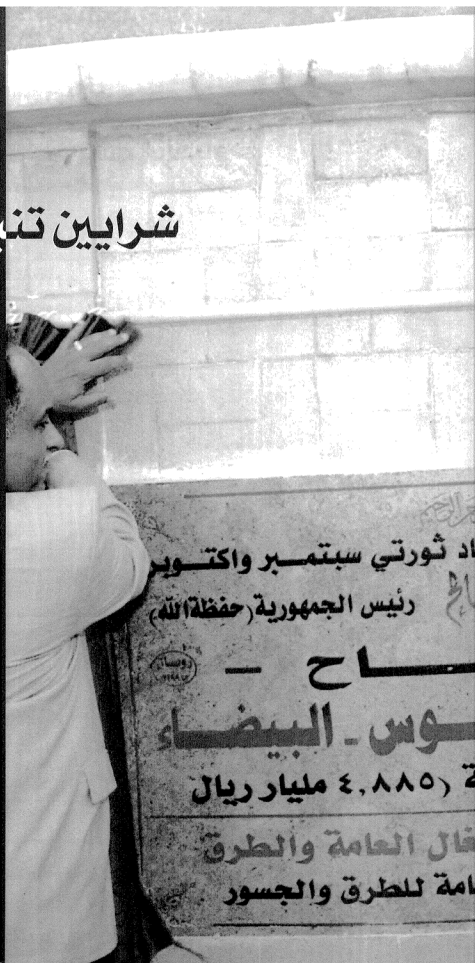 شرايين تنب
اد ثورتي سبتمبر واكتوبر
الح رئيس الجمهورية (حفظة الله)
ـاح -
ـوس - البيضـاء
ة (٤,٨٨٥ مليار ريال
غال العامة والطرق
امة للطرق والجسور